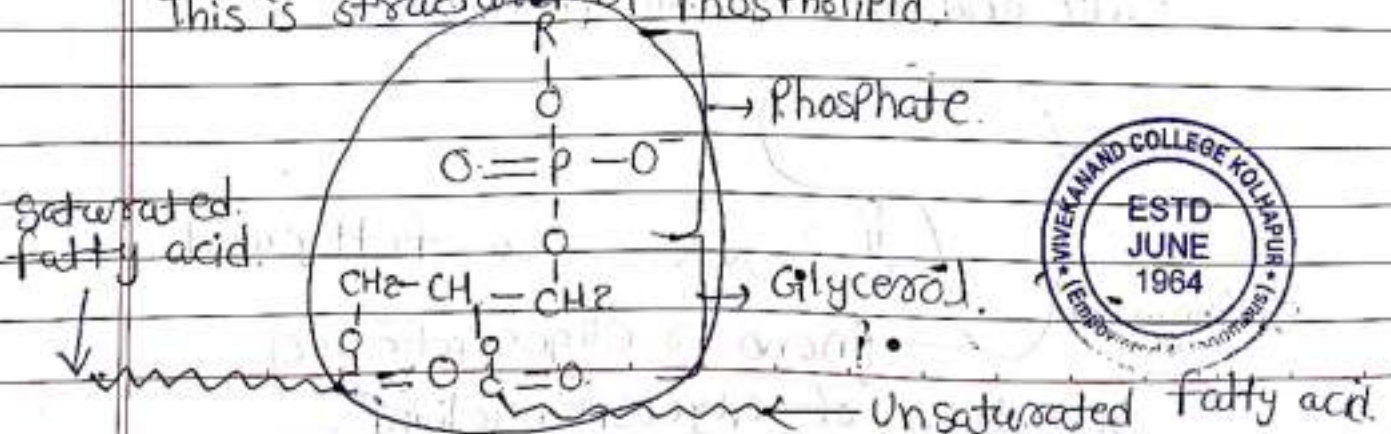 This is structure of Phospholipid.
R
O
→ Phosphate.
O=P-O⁻
saturated.
fatty acid.
O
CH2-CH-CH2
→ Gilycerol.
O O
C=O C=O
Unsaturated fatty acid.
VIVEKANAND COLLEGE KOLHAPUR
ESTD
JUNE
1964